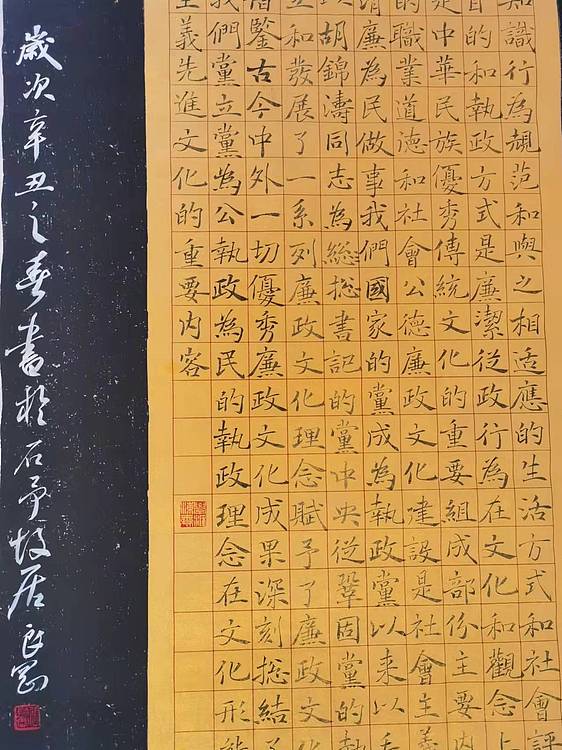 識行為規范和與之相适應的生活方式和社會評
的和執政方式是廉潔從政行為在文化和觀念上
是中華民族優秀傳統文化的重要組成部份主要内
的職業道德和社會公德廉政文化建設是社會主義
清廉為民做事我們國家的黨成為執政黨以來以
以胡錦濤同志為総総書記的黨中央從鞏固黨的
立和發展了一系列廉政文化理念賦予了廉政文
借鑒古今中外一切優秀廉政文化成果深刻総結了
我們黨立黨為公執政為民的執政理念在文化形態
主義先進文化的重要内容
歲次辛丑之春書於石予故居良